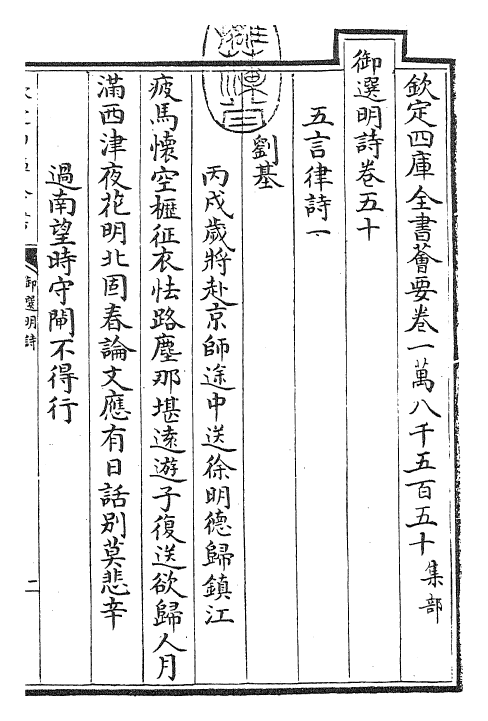 欽定四庫全書薈要卷一萬八千五百五十 集部
御選明詩卷五十
五言律詩一
劉基
丙戌歲將赴京師途中送徐明德歸鎮江
疲馬懷空櫪征衣怯路塵那堪遠遊子復送欲歸人月
滿西津夜花明北固春論文應有日話別莫悲辛
過南望時守閘不得行
御選明詩
二